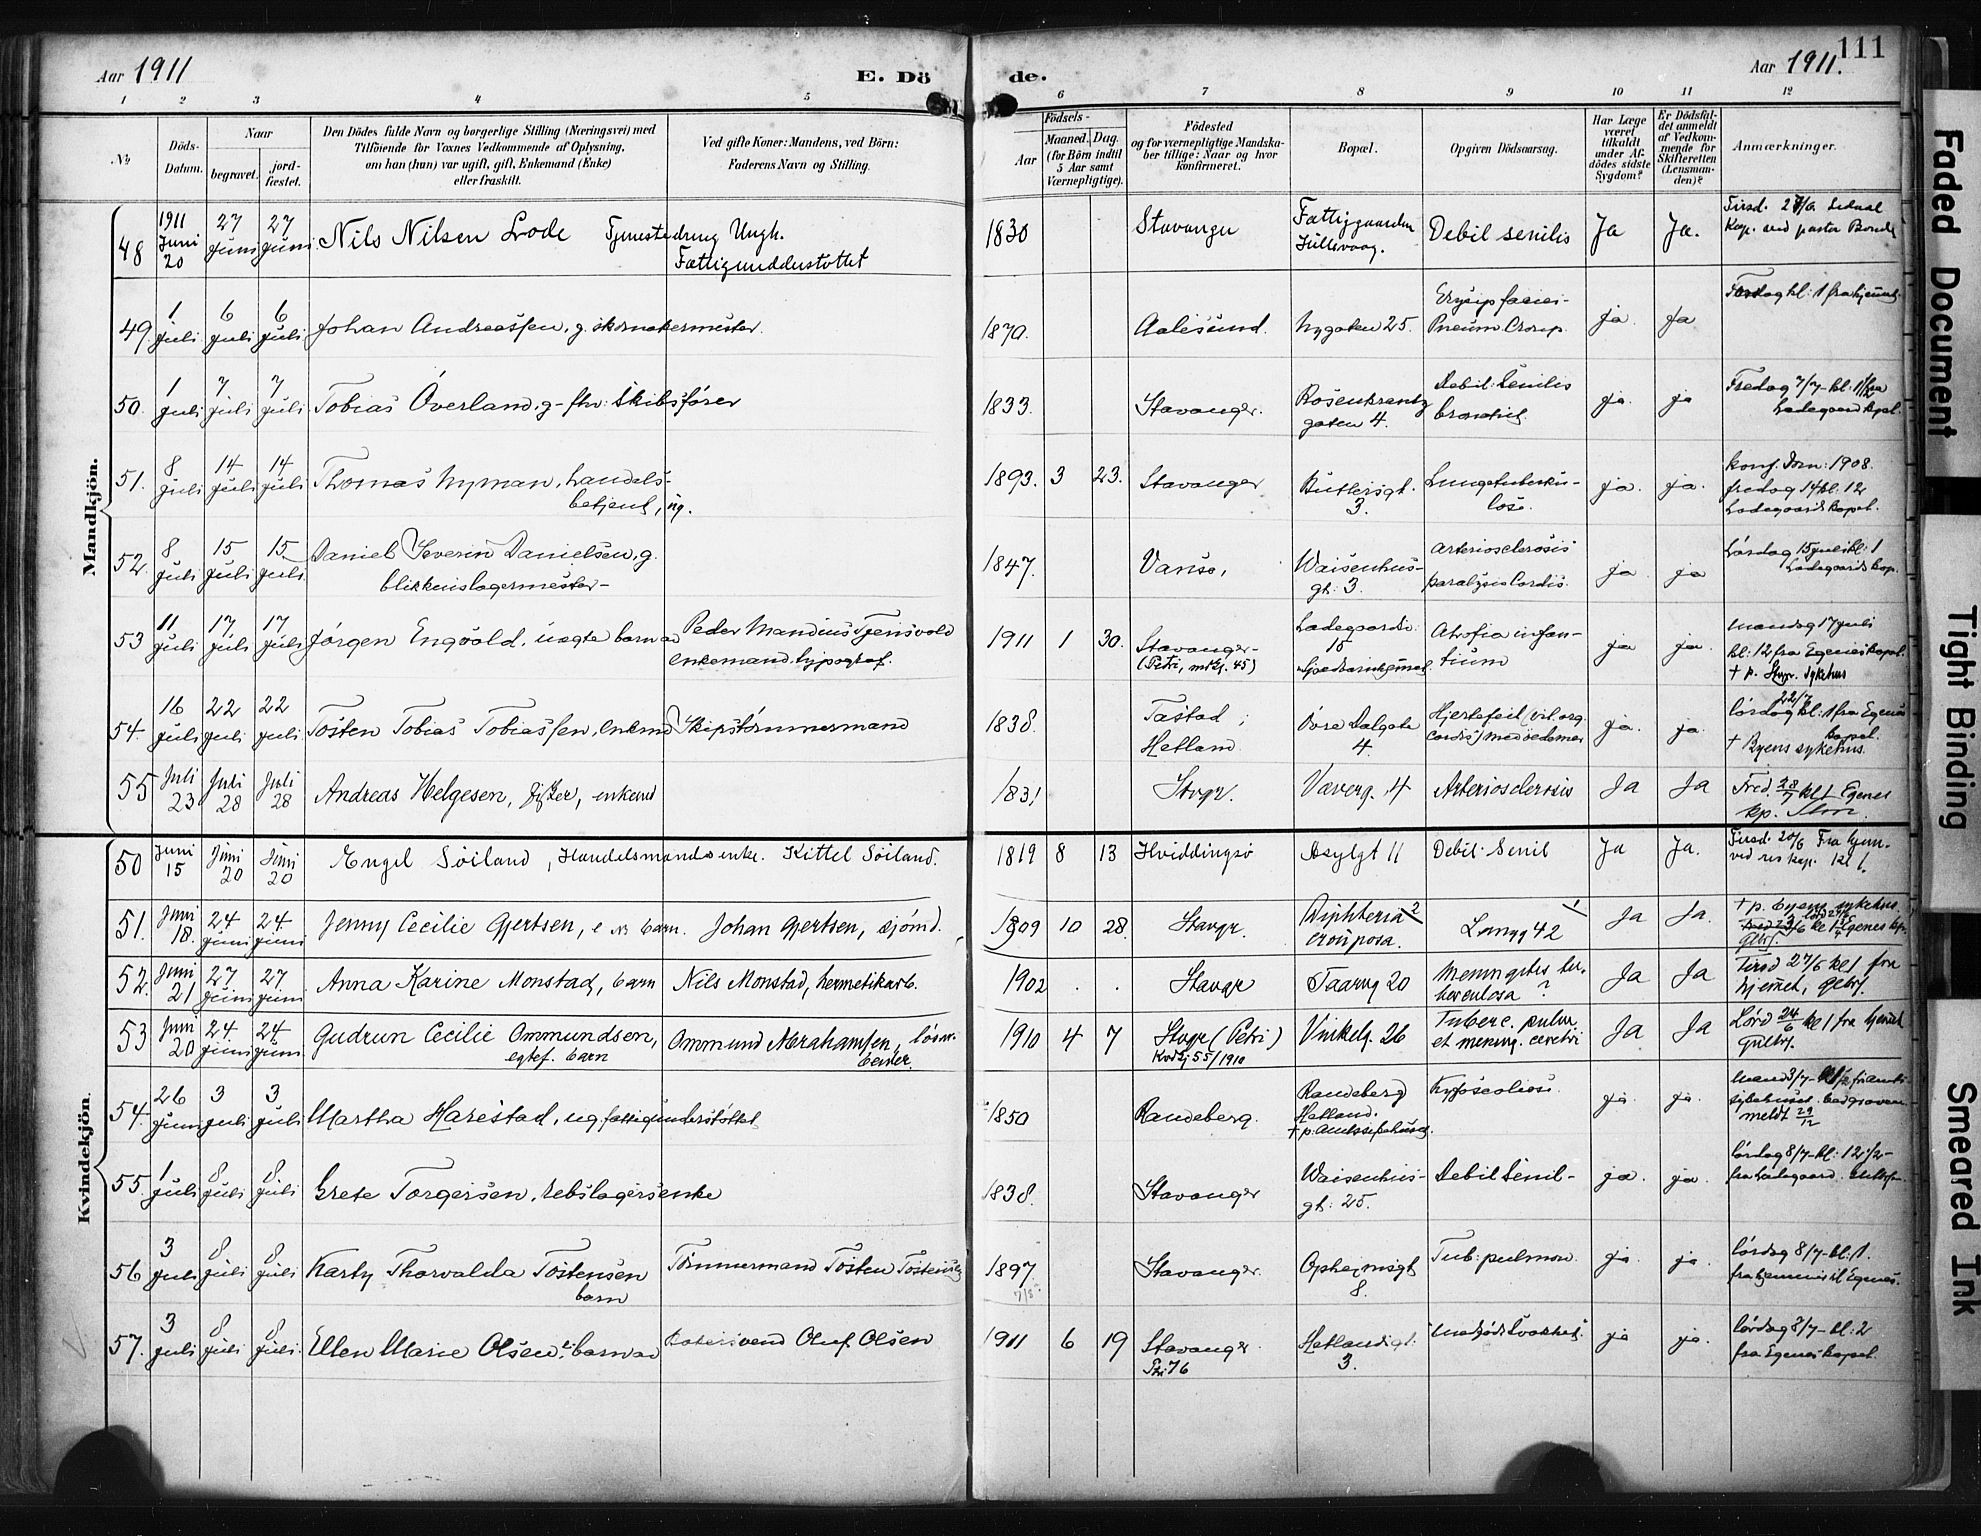 111
Aar 1911
E. Döde.
Aar 1911.
1 2 3 4 5 6 7 8 9 10 11 12
№
Döds-Datum.
Naar
begravet.
jord-fæstet.
Den Dödes fulde Navn og borgerlige Stilling (Næringsvei) med
Tilföiende for Voxnes Vedkommende af Oplysning,
om han (hun) var ugift, gift, Enkemand (Enke)
eller fraskilt.
Ved gifte Koner: Mandens, ved Börn:
Faderens Navn og Stilling.
Födsels-
Aar
Maaned. Dag.
(for Börn indtil
5 Aar samt
Værnepligtige).
Födested
og for værnepligtige Mandska-
ber tillige: Naar og hvor
konfirmeret.
Bopæl.
Opgiven Dödsaarsag.
Har Læge
været
tilkaldt
under Af-
dödes sidste
Sygdom?
Er Dödsfal-
det anmeldt
af Vedkom-
mende for
Skifteretten
(Lensman-
den)?
Anmærkninger.
Mandkjön.
48 1911 Juni 20 27 Juni 27 Juni Nils Nilsen Lode Tjenestedreng Ungk. Fattigunderstøttet 1830 Stavanger Fattiggaarden Debil senilis Ja Ja.
49. 1 Juli 6 Juli 6 Juli Johan Andreassen, g. skomakermester. 1870. Aalesund. Nygaten 25. Erysip faciei- Pneum Croup. ja. ja
50. 1 Juli 7 Juli 7 Juli Tobias Överland, g- fhv: Skibsfører 1833. Stavanger. Rosenkrantz gaten 4. Debil: Senilis ja. ja Fredag 7/7- kl: 1 1/2 fra Ladegaard kpel.
51. 8 Juli 14 Juli 14 Juli Thomas Nyman, handels-betjent, ug. 1893. 3 23. Stavanger Buttersgt. 3. Lungetuberku-lose. ja. ja. Konf. Dom: 1908. fredag 14 kl. 12 Ladegaards kapel.
52. 8 Juli 15 Juli 15 Juli Daniel Severin Danielsen, g. blikkenslagermester- 1847. Vansø, Waisenhus-gt: 3. Arteriosclerosis paralysis Cordis. ja ja Lørdag 15 juli kl: 1 Ladegaards kap.
53 11 Juli 17 Juli 17 Juli Jørgen Engvold, uægte barn av Peder Mandius Tjensvold enkemand, typograf. 1911 1 30. Stavanger- (Petri, mkj. 45) Ladegaardsv: 15 Atrofia infan-tium ja ja. Mandag 17 juli kl: 12 fra Egenes kapel. † p. Stvgr. Sykehus
54. 16 Juli 22 Juli 22 Juli Tosten Tobias Tobiassen, enkemd Skipstømmermand 1838. Tastad; Hetland. Øvre Dalgate 4. Hjertefeil (vit. org. Cordis) med oedemer ja. ja. lørdag 22/7 kl: 1 fra Egenes kapel. † Byens sykehus.
55 Juli 23 Juli 28 Juli 28 Andreas Helgesen, fisker, enkemd 1831 Stvgr. Væverg. 4 Arteriosclerosis Ja Ja Fred. 28/7 kl 1 Egenes kp.
Kvindekjön.
50 Juni 15 Juni 20 Juni 20 Engel Søiland, Handelsmands enke. Kittel Søiland. 1819 8 13 Hviddingsø Asylgt 11 Debil. Senil Ja Ja. Tirsd. 20/6 Fra hjem. kl 1.
51. Juni 18. 24 Juni 24 Juni Jenny Cecilie Gjertsen, e barn. Johan Gjertsen, sjømd. 1909 10 28. Stavgr. Diphteria crouposa. 2 Langg 42 1 Ja Ja. † p. Byens sykehus.
52. Juni 21 27 Juni 27 Juni Anna Karine Monstad, barn Nils Monstad, hermetikarb. 1902 . . Stavgr Taarng 20 Meningites tu-berculosa ? Ja Ja Tirsd 27/6 kl 1 fra hjemet,
53 Juni 20 24 Juni 24 Juni Gudrun Cecilie Ommundsen, egtef. barn Ommund Abrahamsen, 1910 4 7 Stvgr (Petri) Kvdkj 55/1910 Vinkelg. 26 Tuberc. pulm. et mening. cerebri Ja Ja Lørd 24/6 kl 1 fra hjemmet
54. 26 Juni 3 Juli 3 Juli Martha Harestad, ug, fattigunderstøttet 1850 Randeberg. Randeberg Hetland. † p. Amtssykehuset. Kyfoscoliose. ja. ja.
55. 1 Juli 8 Juli 8 Juli Grete Torgersen, rebslagersenke 1838. Stavanger Waisenhus-gt: 25. Debil Senil- ja. ja. lørdag 8/7- kl: 12 1/2- fra Ladegaard.
56 3 Juli 8 Juli 8 Juli Karty Thorvalda Tostensen barn Tømmermand Tosten Tostensen 1897. 7/8 Stavanger. Opheimsgt 8. Tub: pulmon. ja. ja. lørdag 8/7- kl: 1.
57. 3 Juli 8 Juli 8 Juli Ellen Marie Olsen, barn av Oluf Olsen 1911 6 19 Stavanger Ptr 76 Hetlandsgt: 3. "Medfødt Svakhet". ja ja. lørdag 8/7- kl: 2 fra Egenes kapel.
Faded Document
Tight Binding
Smeared Ink